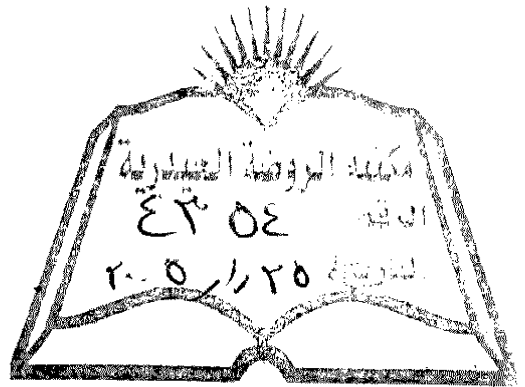 مكتبة الروضة الحيدرية
الرقم ٤٣٥٤
التاريخ ٢٥/١/٢٠٠٥